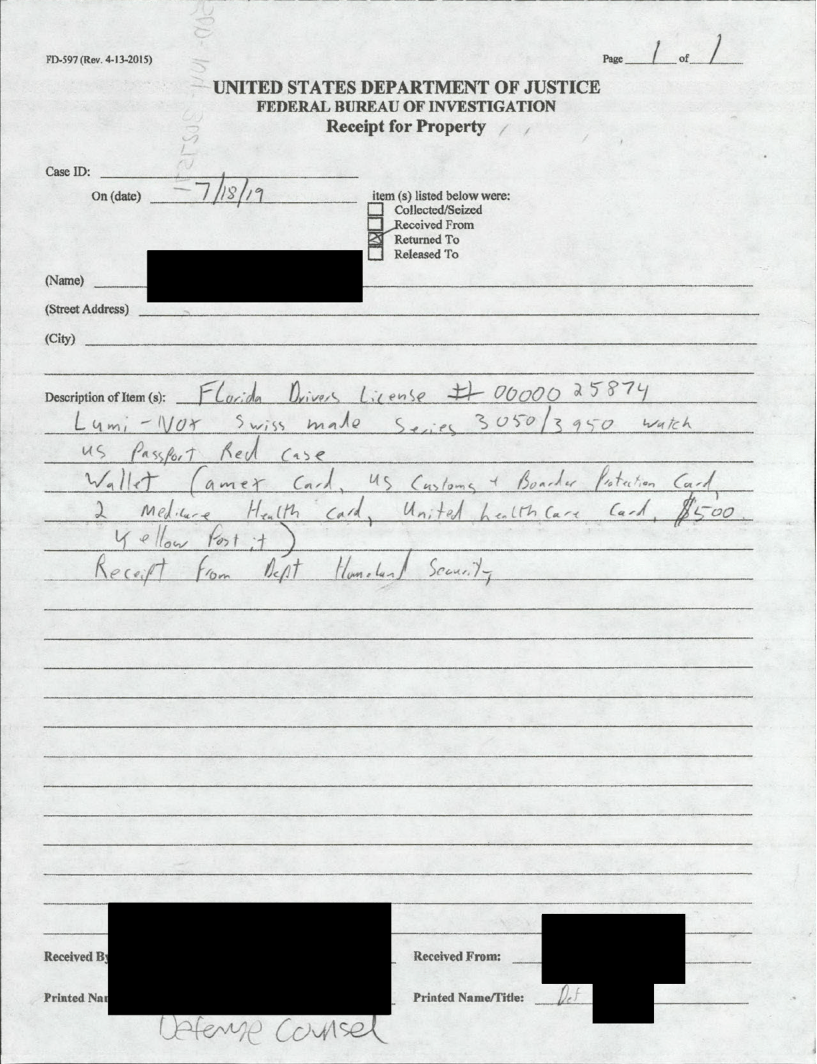 FD-597 (Rev. 4-13-2015)
Page 1 of 1
UNITED STATES DEPARTMENT OF JUSTICE
FEDERAL BUREAU OF INVESTIGATION
Receipt for Property
Case ID:
On (date) 7/18/19
item (s) listed below were:
Collected/Seized
Received From
Returned To
Released To
(Name)
(Street Address)
(City)
Description of Item (s): Florida Drivers License # 00000 25874
Lumi-Nox Swiss made Series 3050/3950 watch
US Passport Red Case
Wallet (amex Card, US Customs + Boarder Protection Card,
2 Medicare Health card, United healthcare Card, $500
Yellow Post it)
Receipt from Dept Homeland Security
Received By
Received From:
Printed Nam
Printed Name/Title: Det
Defense Counsel